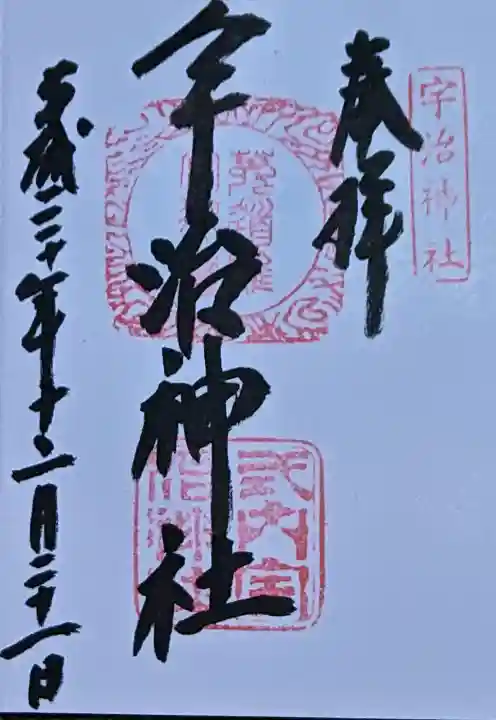 宇治神社
奉拝
宇治神社
式内宇治神社
平成三十年十二月二十一日